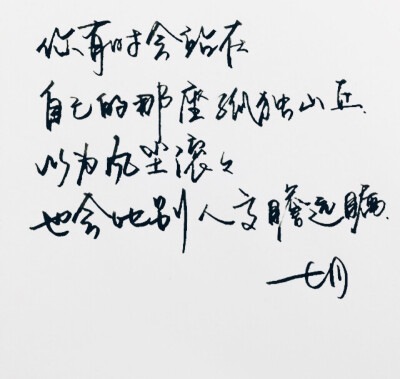 你有时会站在
自己的那座孤独山丘
以为风尘滚滚
也会比别人高瞻远瞩.
七月